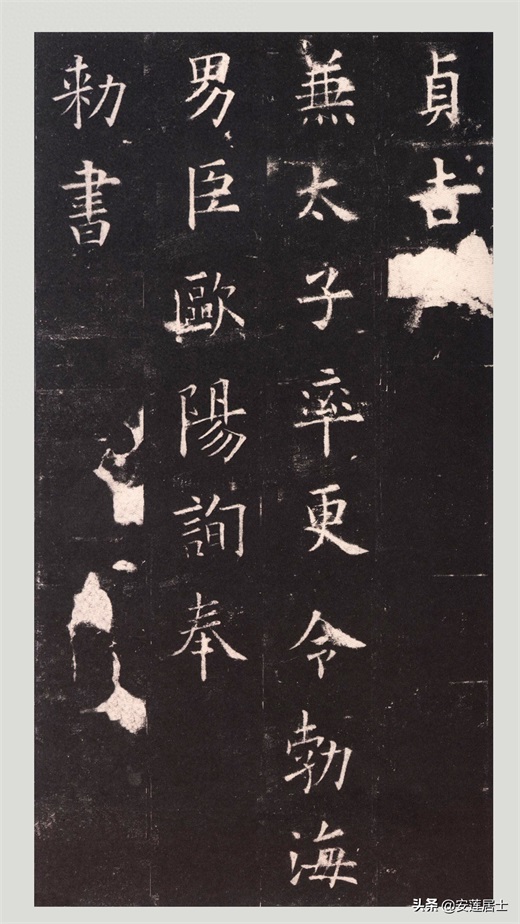 貞吉
兼太子率更令勃海
男臣歐陽詢奉
勑書
头条@安莲居士